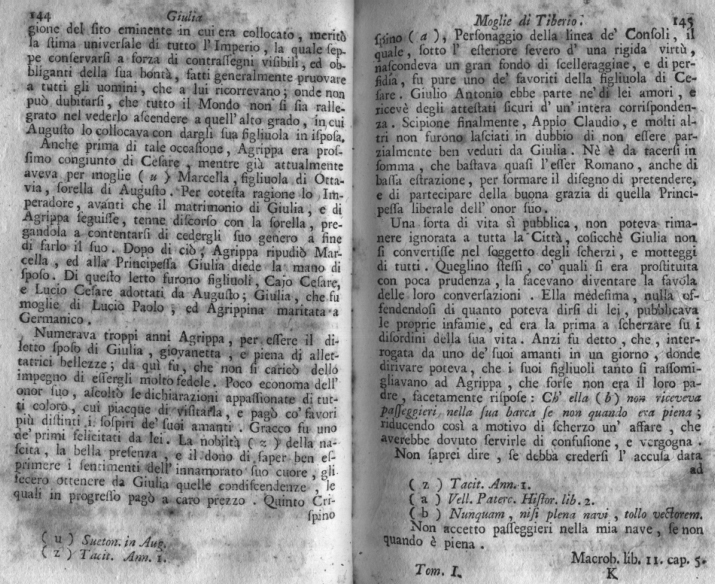 144 Giulia
gione del ſito eminente in cui era collocato, meritò
la ſtima univerſale di tutto l'Imperio, la quale ſep-
pe conſervarſi a forza di contraſſegni viſibili, ed ob-
bliganti della ſua bontà, fatti generalmente pruovare
a tutti gli uomini, che a lui ricorrevano; onde non
può dubitarſi, che tutto il Mondo non ſi ſia ralle-
grato nel vederlo aſcendere a quell'alto grado, in cui
Auguſto lo collocava con dargli ſua figliuola in iſpoſa.
Anche prima di tale occaſione, Agrippa era proſ-
ſimo congiunto di Ceſare, mentre già attualmente
aveva per moglie (u) Marcella, figliuola di Otta-
via, ſorella di Auguſto. Per coteſta ragione lo Im-
peradore, avanti che il matrimonio di Giulia, e di
Agrippa ſeguiſſe, tenne diſcorſo con la ſorella, pre-
gandola a contentarſi di cedergli ſuo genero a fine
di farlo il ſuo. Dopo di ciò, Agrippa ripudiò Mar-
cella, ed alla Principeſſa Giulia diede la mano di
ſpoſo. Di queſto letto furono figliuoli, Cajo Ceſare,
e Lucio Ceſare adottati da Auguſto; Giulia, che fu
moglie di Lucio Paolo; ed Agrippina maritata a
Germanico.
Numerava troppi anni Agrippa, per eſſere il di-
letto ſpoſo di Giulia, giovanetta, e piena di allet-
tatrici bellezze; da quì fu, che non ſi caricò dello
impegno di eſſergli molto fedele. Poco economa dell'
onor ſuo, aſcoltò le dichiarazioni appaſſionate di tut-
ti coloro, cui piacque di viſitarla, e pagò co' favori
più diſtinti i ſoſpiri de' ſuoi amanti. Gracco fu uno
de' primi felicitati da lei. La nobiltà (z) della na-
ſcita, la bella preſenza, e il dono di ſaper ben eſ-
primere i ſentimenti dell'innamorato ſuo cuore, gli
fecero ottenere da Giulia quelle condiſcendenze, le
quali in progreſſo pagò a caro prezzo. Quinto Criſ-
ſpino
(u) Sueton. in Aug.
(z) Tacit. Ann. 1.
Moglie di Tiberio. 145
ſpino (a), Perſonaggio della linea de' Conſoli, il
quale, ſotto l' eſteriore ſevero d' una rigida virtù,
naſcondeva un gran fondo di ſcelleraggine, e di per-
fidia, fu pure uno de' favoriti della figliuola di Ce-
ſare. Giulio Antonio ebbe parte ne' di lei amori, e
ricevè degli atteſtati ſicuri d' un'intera corriſponden-
za. Scipione finalmente, Appio Claudio, e molti al-
tri non furono laſciati in dubbio di non eſſere par-
zialmente ben veduti da Giulia. Nè è da tacerſi in
ſomma, che baſtava quaſi l'eſſer Romano, anche di
baſſa eſtrazione, per formare il diſegno di pretendere,
e di partecipare della buona grazia di quella Princi-
peſſa liberale dell' onor ſuo.
Una ſorta di vita sì pubblica, non poteva rima-
nere ignorata a tutta la Città, coſicchè Giulia non
ſi convertiſſe nel ſoggetto degli ſcherzi, e motteggi
di tutti. Queglino ſteſſi, co' quali ſi era proſtituita
con poca prudenza, la facevano diventare la favola
delle loro converſazioni. Ella medeſima, nulla of-
fendendoſi di quanto poteva dirſi di lei, pubblicava
le proprie infamie, ed era la prima a ſcherzare ſu i
diſordini della ſua vita. Anzi fu detto, che, inter-
rogata da uno de' ſuoi amanti in un giorno, donde
dirivare poteva, che i ſuoi figliuoli tanto ſi raſſomi-
gliavano ad Agrippa, che forſe non era il loro pa-
dre, facetamente riſpoſe: Ch' ella (b) non riceveva
paſſeggieri nella ſua barca ſe non quando era piena;
riducendo così a motivo di ſcherzo un' affare, che
averebbe dovuto ſervirle di confuſione, e vergogna.
Non ſaprei dire, ſe debba crederſi l' accuſa data
ad
(z) Tacit. Ann. 1.
(a) Vell. Paterc. Hiſtor. lib. 2.
(b) Nunquam, niſi plena navi, tollo vectorem.
Non accetto paſſeggieri nella mia nave, ſe non
quando è piena.
Macrob. lib. 11. cap. 5.
Tom. I. K